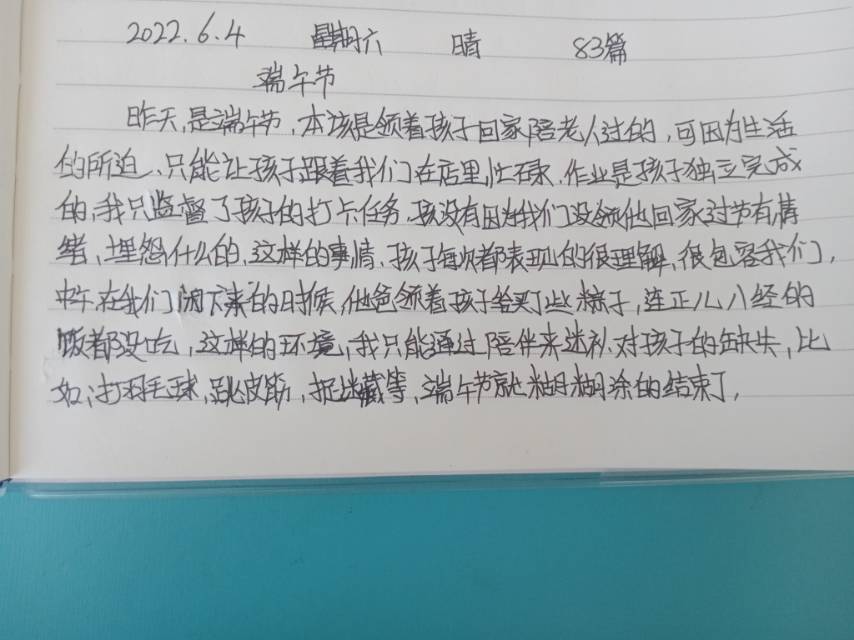 2022.6.4 星期六 晴 83篇
端午节
昨天,是端午节,本该是领着孩子回家陪老人过的,可因为生活
的所迫、只能让孩子跟着我们在店里忙碌,作业是孩子独立完成
的,我只监督了孩子的打卡任务,孩没有因为我们没领他回家过节有情
绪、埋怨什么的,这样的事情、孩子每次都表现的很理解,很包容我们,
中午,在我们闲下来的时候,他爸领着孩子给买了些粽子,连正儿八经的
饭都没吃,这样的环境,我只能通过陪伴来迷补对孩子的缺失,比
如,打羽毛球,跳皮筋,捉迷藏等,端午节就糊糊涂的结束了,